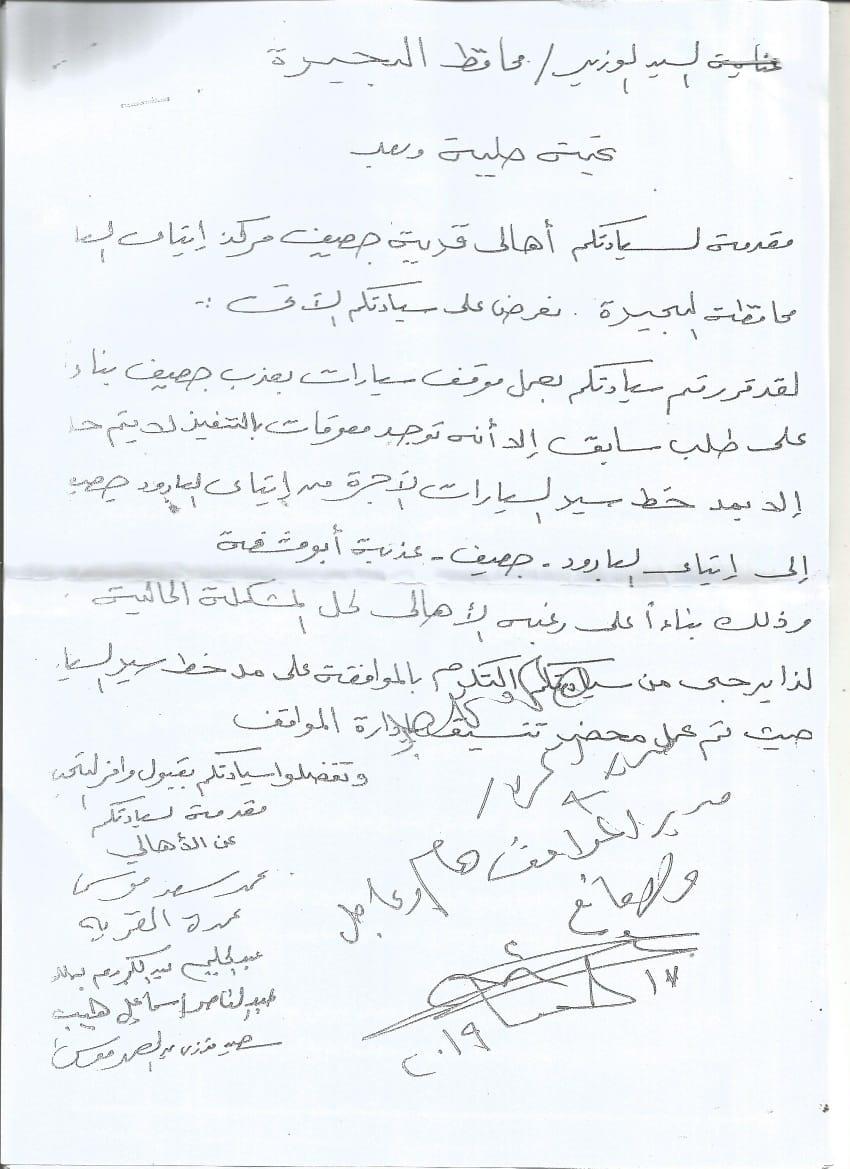 السيد الوزير / محافظ البحيرة
تحية طيبة وبعد
مقدمة لسيادتكم أهالى قرية جصيف مركز إيتاى البا
محافظة البحيرة . نعرض على سيادتكم الآتى :-
لقد قررتم سيادتكم بعمل موقف سيارات بعزب جصيف بناء
على طلب سابق إلا أنه توجد معوقات بالتنفيذ لا يتم حـ
إلا بمد خط سير السيارات الأجرة من إيتاى البارود جصيف
إلى إيتاى البارود - جصيف - عزبة أبو مشفة
وذلك بناءاً على رغبه الأهالى لحل المشكلة الحالية .
لذا يرجى من سيادتكم التكرم بالموافقة على مد خط سير السيا
حيث تم عمل محضر تنسيق إدارة المواقف
وتفضلوا سيادتكم بقبول وافر التحية
مقدمة لسيادتكم
عن الأهالي
محمد سعد موسى
عمدة القريه
عبد الحليم عبد الكريم
عبد الناصر اسماعيل
مدير المواقف
هام وعاجل
١٧
٢٠١٩